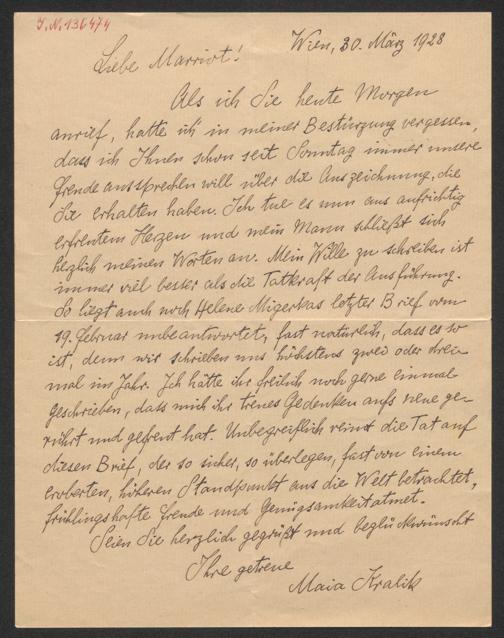 I.N. 136474
Wien, 30. März 1928
Liebe Marriot!
Als ich Sie heute Morgen
anrief, hatte ich in meiner Bestürzung vergessen,
dass ich Ihnen schon seit Sonntag immer unsere
Freude aussprechen will über die Auszeichnung, die
Sie erhalten haben. Ich tue es nun aus aufrichtig
erfreutem Herzen und mein Mann schließt sich
herzlich meinen Worten an. Mein Wille zu schreiben ist
immer viel besser als die Tatkraft der Ausführung.
So liegt auch noch Helene Migerkas letzter Brief vom
19. Februar unbeantwortet, fast natürlich, dass es so
ist, denn wir schrieben uns höchstens zwei oder drei-
mal im Jahr. Ich hätte ihr freilich noch gerne einmal
geschrieben, dass mich ihr treues Gedenken aufs neue ge-
rührt und gefreut hat. Unbegreiflich reimt die Tat auf
diesen Brief, der so sicher, so überlegen, fast von einem
eroberten, höheren Standpunkt aus die Welt betrachtet,
frühlingshafte Freude und Genügsamkeit atmet.
Seien Sie herzlich gegrüßt und beglückwünscht
Ihre getreue
Maia Kralik